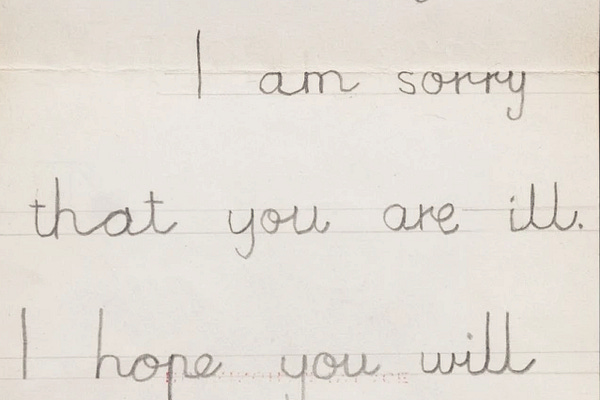 I am sorry
that you are ill.
I hope you will